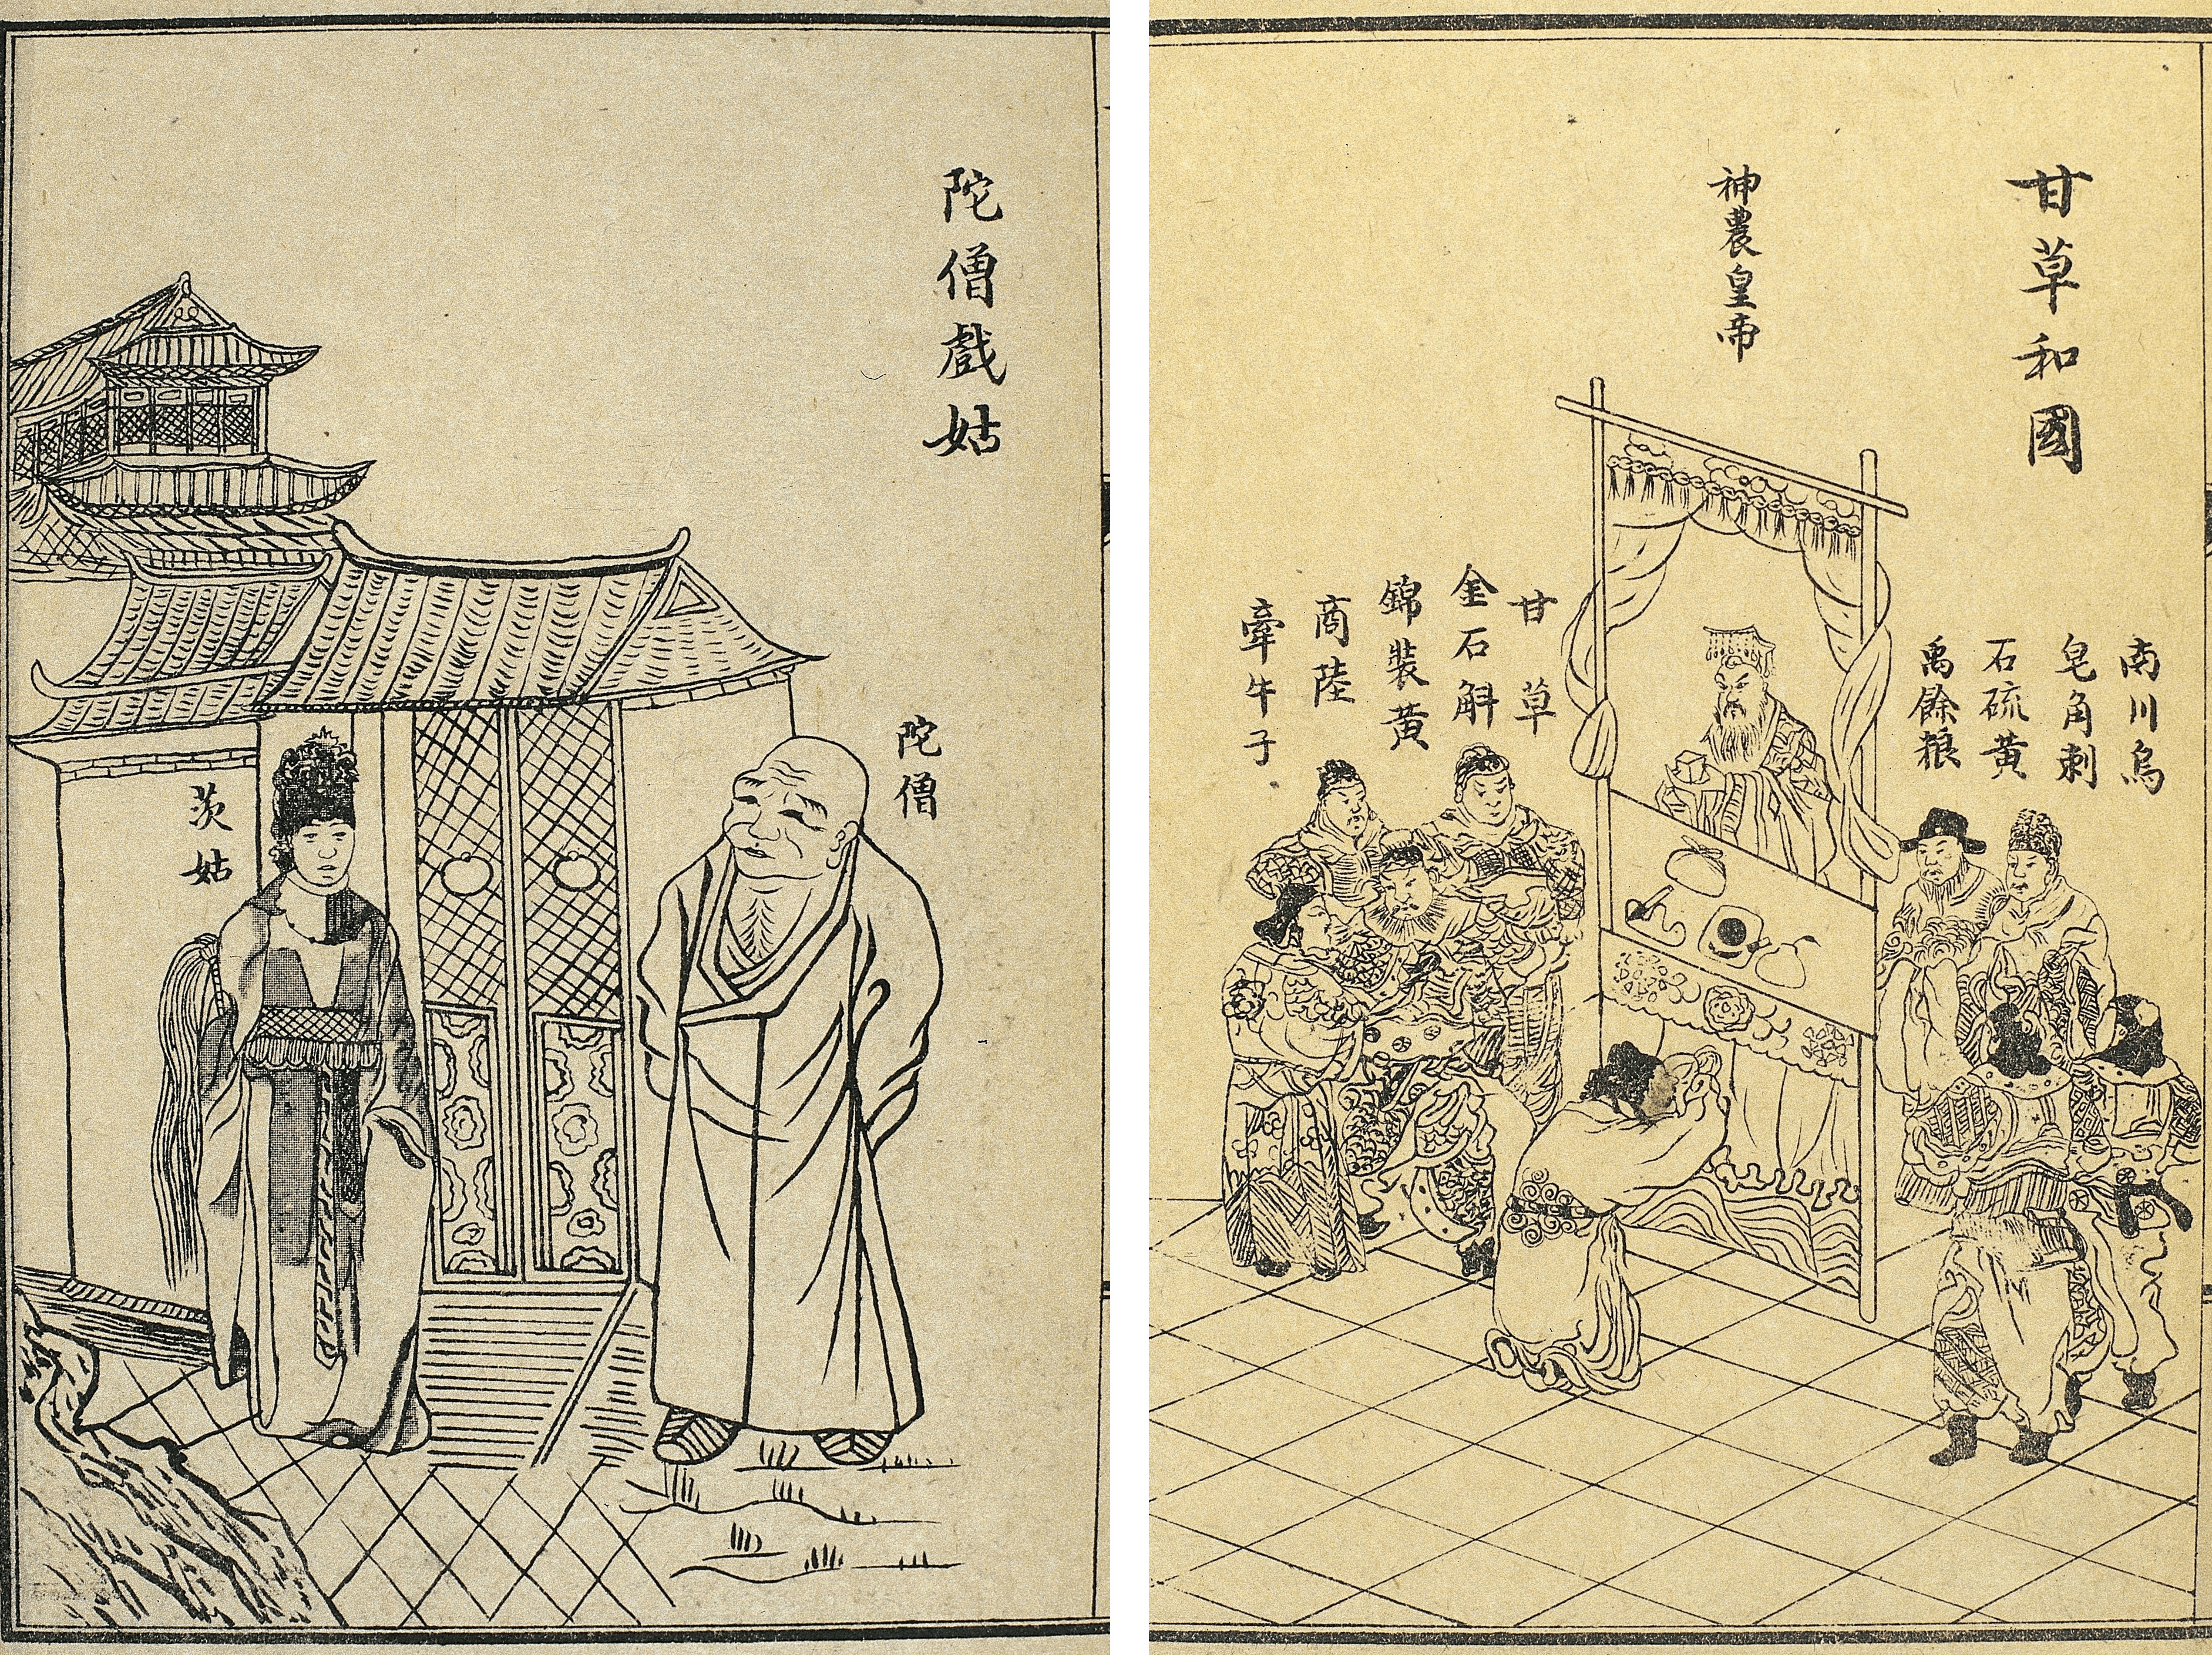 陀僧戲姑
陀僧
茨姑
甘草和國
神農皇帝
南川烏
皂角刺
石硫黃
禹餘粮
甘草
金石斛
錦裝黃
商陸
牽牛子